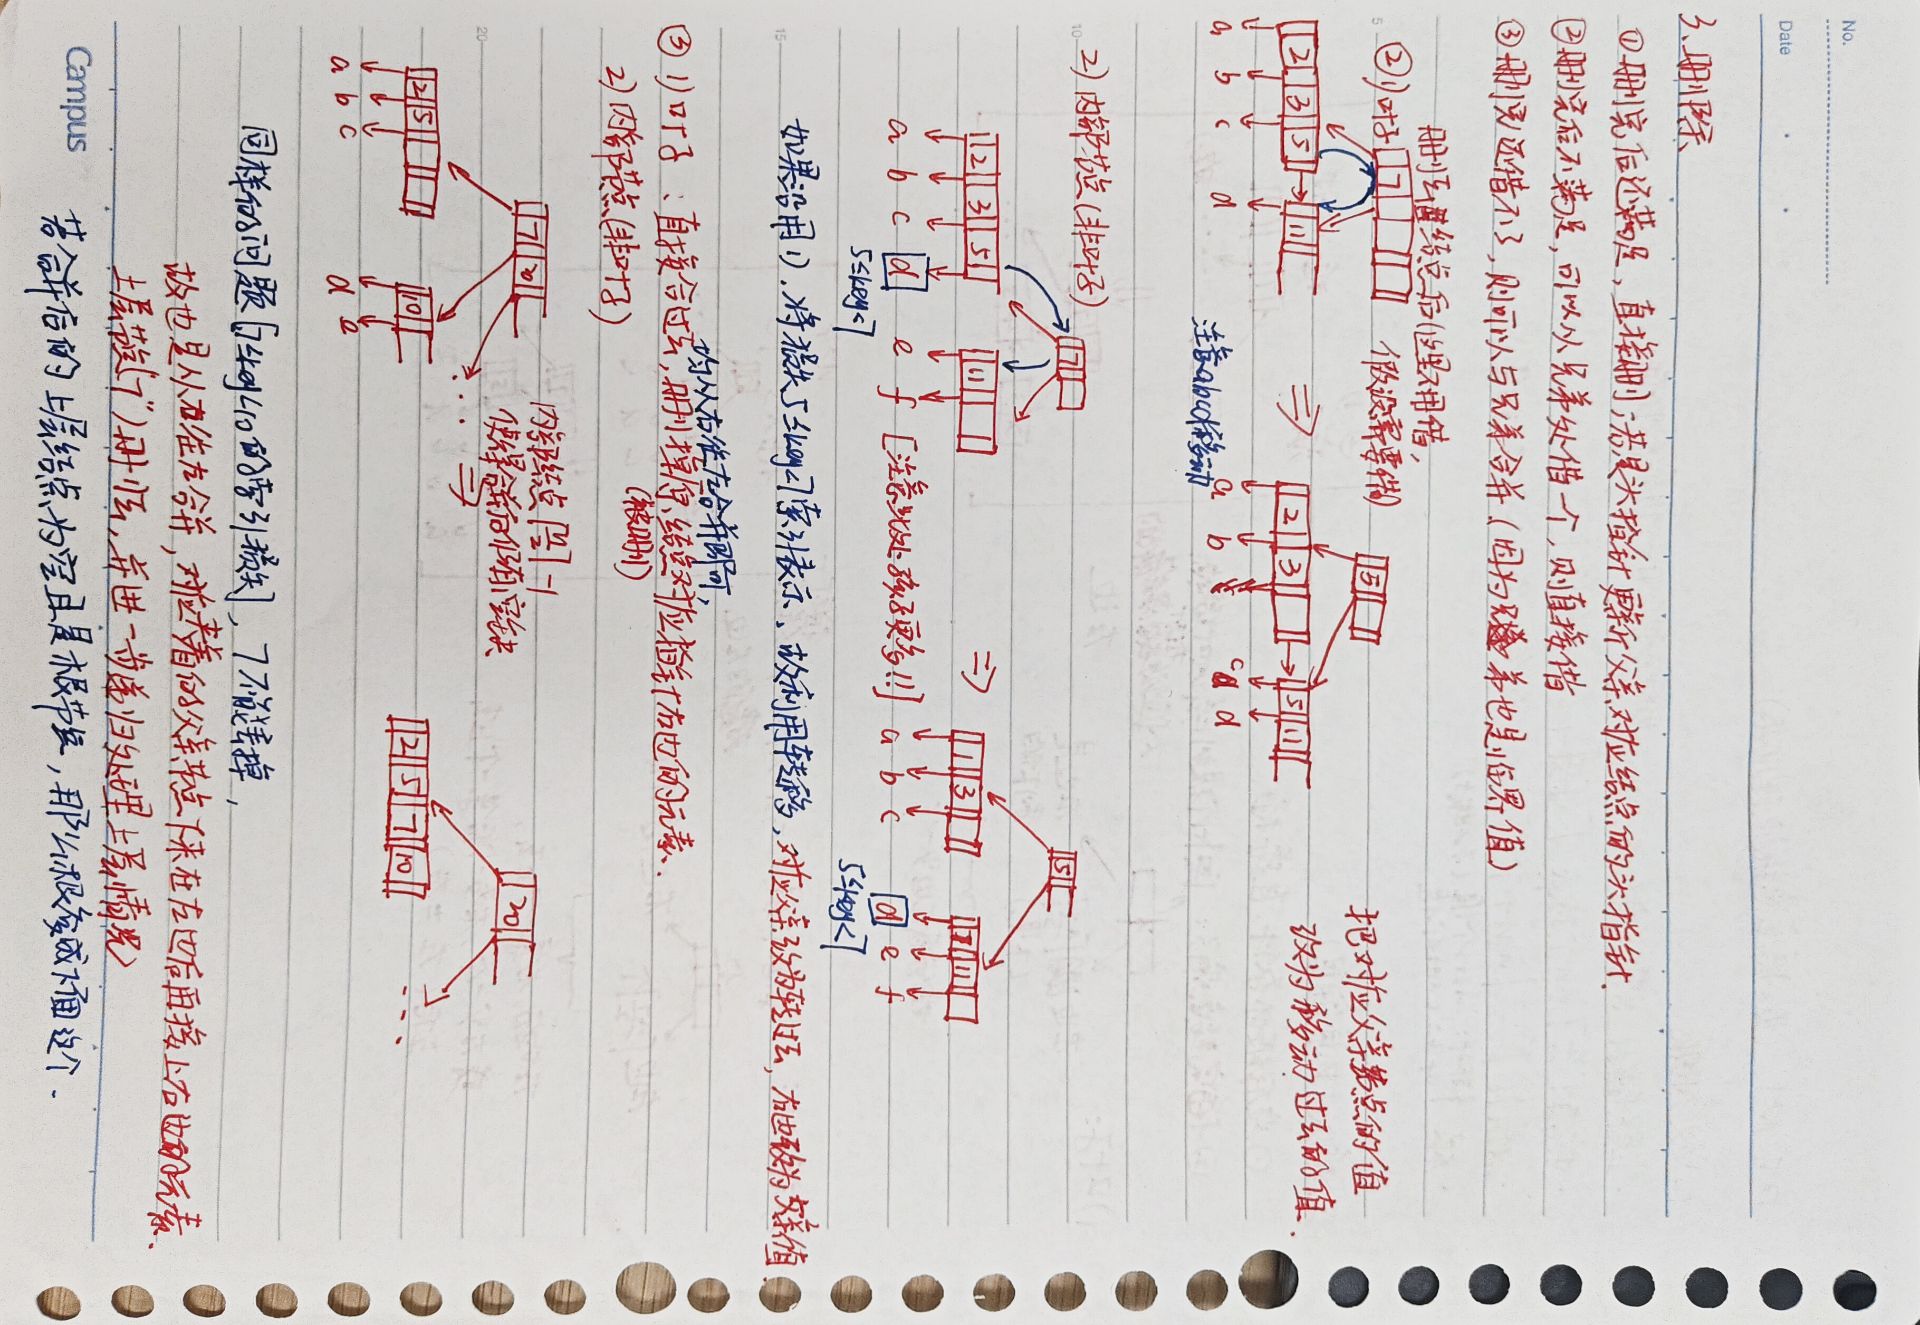 No.
Date
3、删除
①删完后还满足，直接删；若是头指针更新父亲对应结点的头指针．
②删完后不满足，可以从兄弟处借一个，则直接借
③删完还借不了，则可以与兄弟合并（因为兄弟也是临界值）
删去结点后（这里不用借，
假设需要借）
② 1) 叶子
7
5
把对应父亲结点的值
改为移动过去的值．
2 3 5 → 11 ⇒ 2 3 → 5 11
a b c d a b c d
注意abcd移动
2) 内部节点（非叶子）
7 5
2 3 5 11 ⇒ 1 3 7 11
a b c d e f [注意此处孩子更多!!] a b c d e f
5≤key<7 5≤key<7
如果沿用1)，将损失5≤key<7索引表示，故利用转移，对应父亲改为转过去，右也改为父亲值．
均从右往左合并即可，
③ 1) 叶子：直接合过去，删掉原结点对应指针右边的元素．
（被删）
2) 内部节点（非叶子）
7 20
内部结点⌈n/2⌉-1
使得合并后仍有空缺
20
... ⇒
2 5 10 2 5 7 10
...
a b c d e
同样的问题[7≤key<10的索引损失]，7不能丢掉，
故也是从右往左合并，对应夹着的父亲节点下来在左边后再接上右边的元素．
上层节点("7")删去，并进一步递归处理上层情况
Campus
若合并后的上层结点为空且是根节点，那么根变成下面这个．